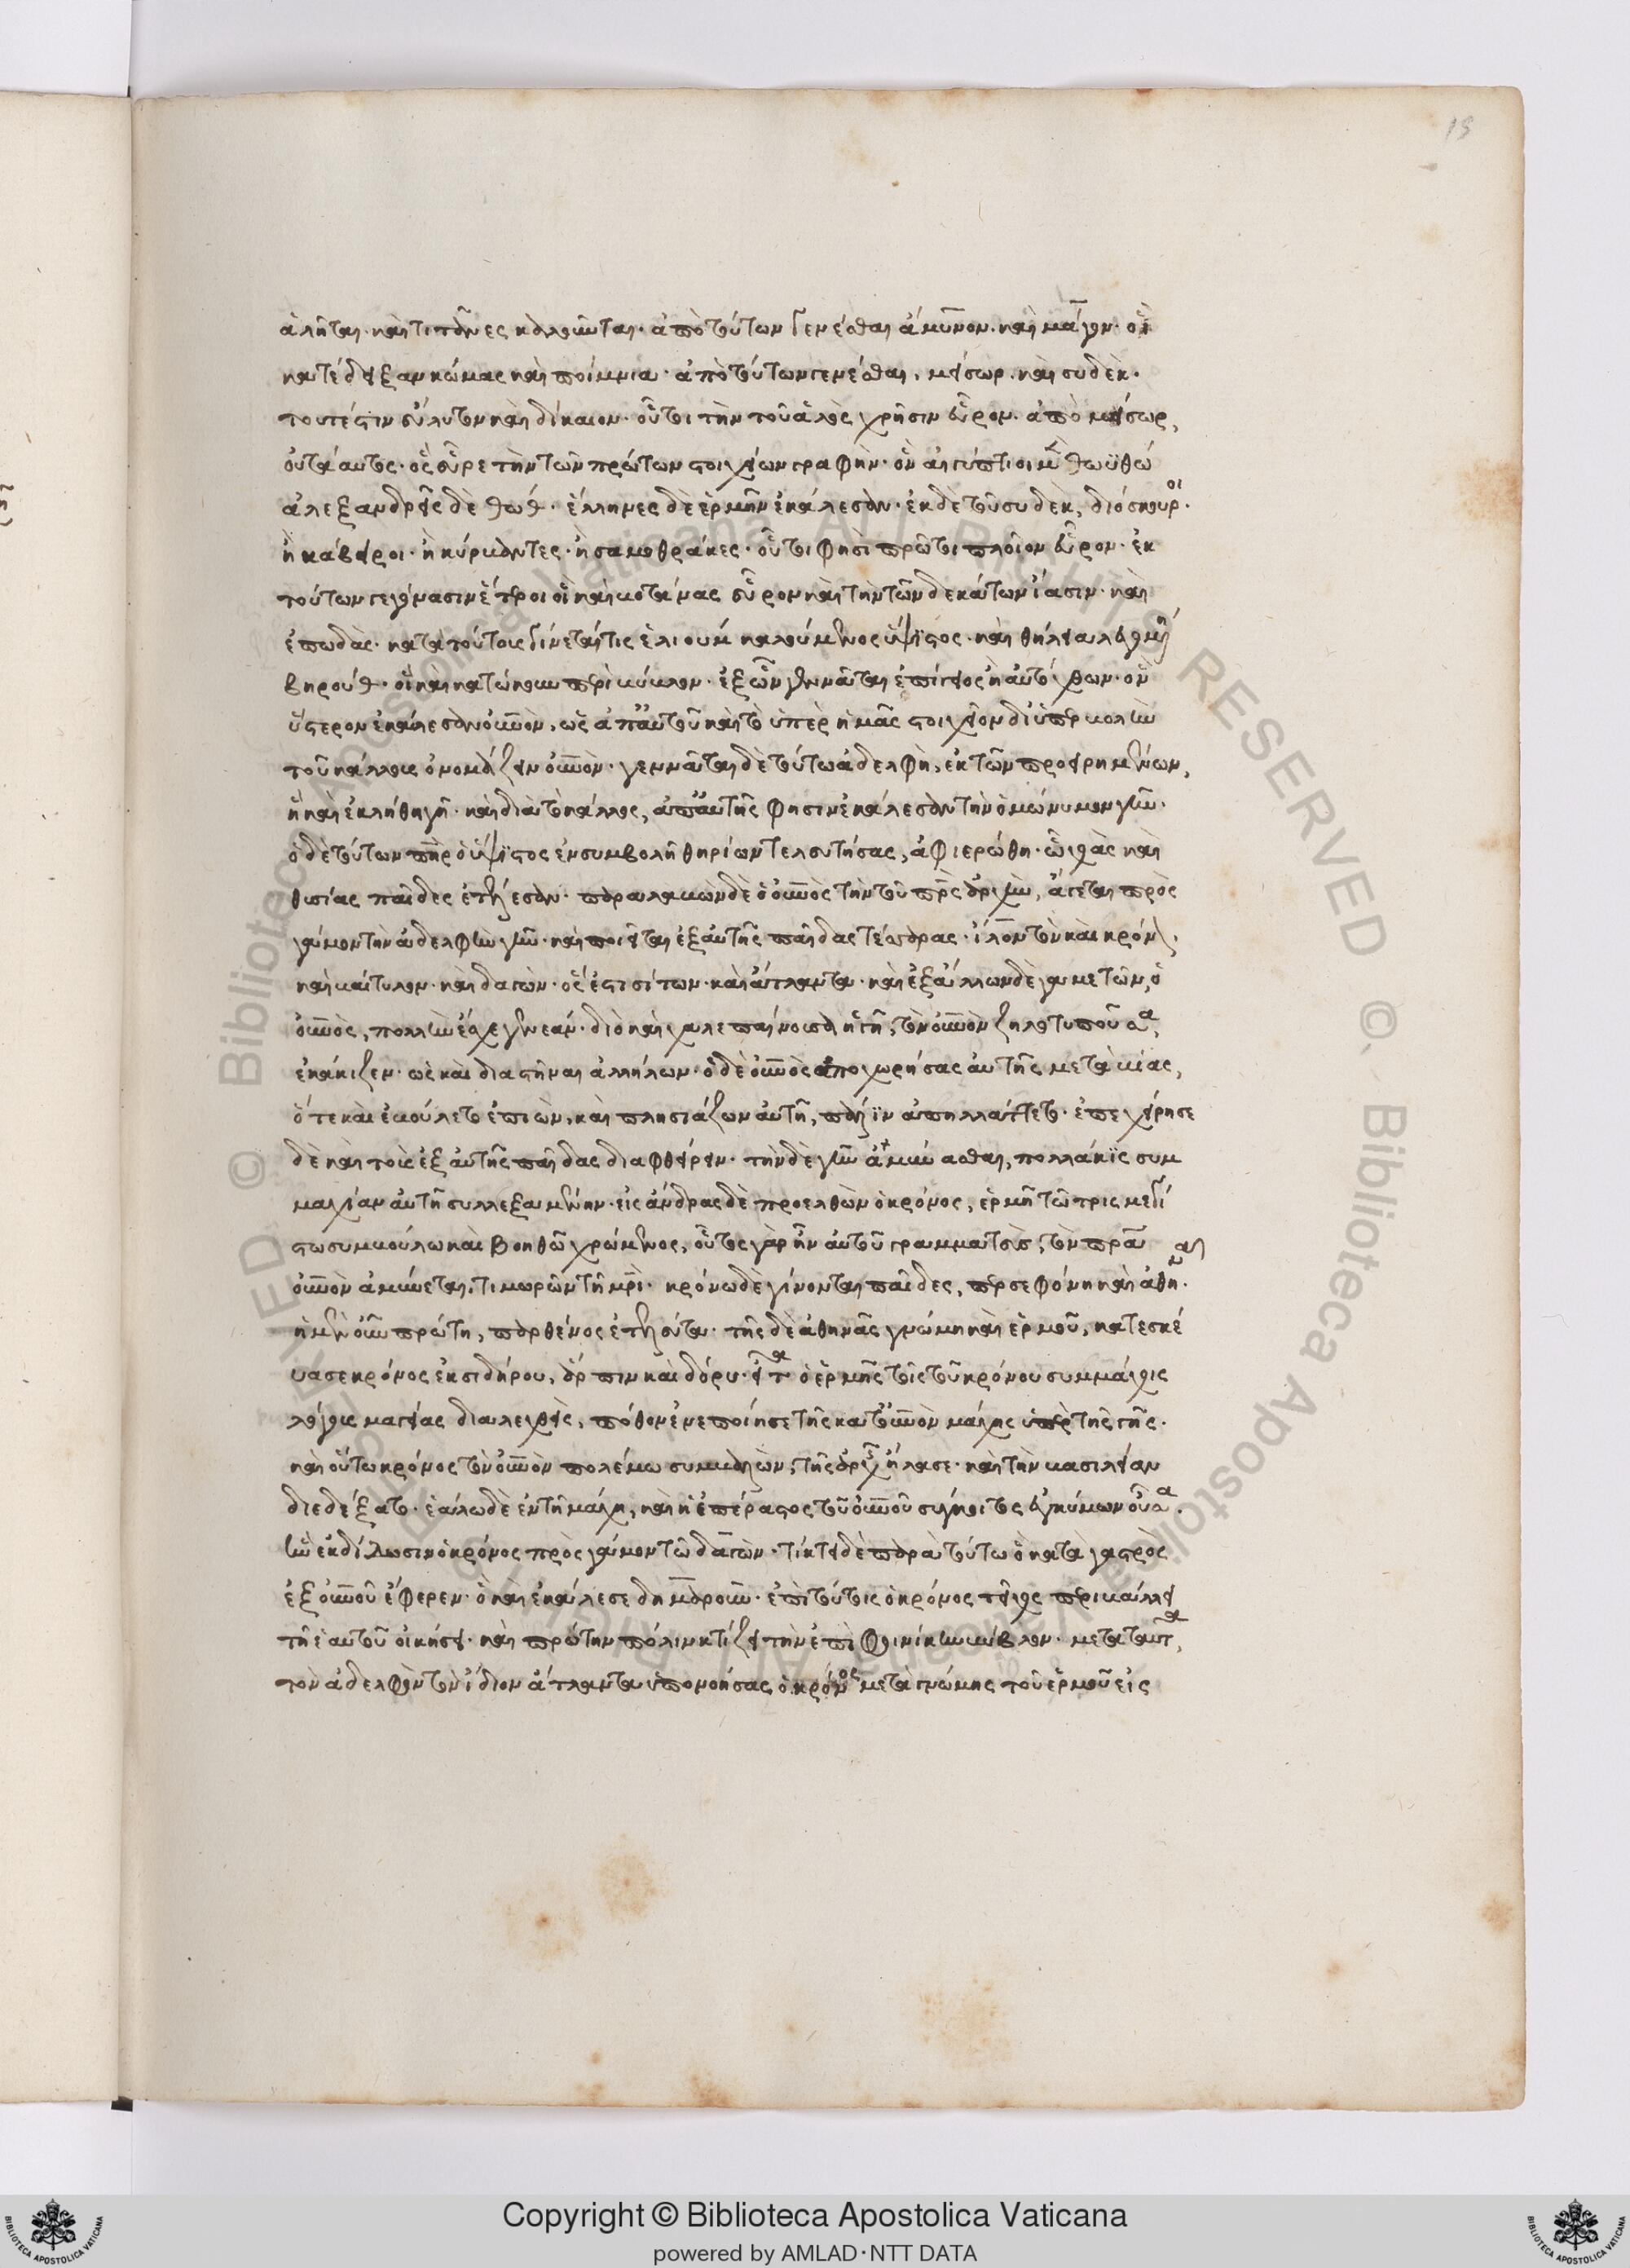 18
ἀλῆται· καὶ τιτᾶνες καλοῦνται· ἀπὸ τούτων γενέσθαι ἄμυνον· καὶ μάγον· οἳ
κατέδειξαν κώμας καὶ ποίμνια· ἀπὸ τούτων γενέσθαι, μισωρ· καὶ συδὲκ·
τουτέστιν εὔλυτον καὶ δίκαιον· οὗτοι τὴν τοῦ ἁλὸς χρῆσιν εὗρον· ἀπὸ μισωρ,
ὁ τάαυτος· ὃς εὗρε τὴν τῶν πρώτων στοιχείων γραφήν· ὃν αἰγύπτιοι μὲν θωϋθώ
ἀλεξανδρεῖς δὲ θώθ· ἕλληνες δὲ ἑρμῆν ἐκάλεσαν· ἐκ δὲ τοῦ συδὲκ, διόσκουροι·
ἢ κάβειροι· ἢ κύρβαντες· ἢ σαμοθρᾶκες· οὗτοι φησὶ πρῶτοι πλοῖον εὗρον· ἐκ
τούτων γεγόνασιν ἕτεροι οἳ καὶ βοτάνας εὗρον καὶ τὴν τῶν δεκάτων ἴασιν· καὶ
ἐπωδάς· κατὰ τούτοις γίνεταί τις ἐλιουμ καλούμενος ὕψιστος· καὶ θήλεια λεγομένη
βηρούθ· οἳ καὶ κατώκουν περὶ βύβλον· ἐξ ὧν γεννᾶται ἐπίγειος ἢ αὐτόχθων· ὃν
ὕστερον ἐκάλεσαν οὐρανόν, ὡς ἀπ' αὐτοῦ καὶ τὸ ὑπὲρ ἡμᾶς στοιχεῖον δι' ὑπερβολὴν
τοῦ κάλλους ὀνομάζειν οὐρανόν· γεννᾶται δὲ τούτω ἀδελφὴ, ἐκ τῶν προειρημένων,
ἣ καὶ ἐκλήθη γῆ· καὶ διὰ τὸ κάλλος, ἀπ' αὐτῆς φησὶν ἐκάλεσαν τὴν ὁμώνυμον γῆν·
ὁ δὲ τούτων πατὴρ ὁ ὕψιστος ἐν συμβολῆ θηρίων τελευτήσας, ἀφιερώθη· ᾧ χοὰς καὶ
θυσίας παῖδες ἐτέλεσαν· παραλαβὼν δὲ ὁ οὐρανὸς τὴν τοῦ πατρὸς ἀρχὴν, ἄγεται πρὸς
γάμον τὴν ἀδελφὴν γῆν· καὶ ποιεῖται ἐξ αὐτῆς παῖδας τέσσαρας· ἶλον τὸν καὶ κρόνον,
καὶ βαίτυλον· καὶ δαγών· ὅς ἐστι σίτων· καὶ ἄτλαντα· καὶ ἐξ ἄλλων δὲ γαμετῶν, ὁ
οὐρανὸς, πολλὴν ἔσχε γενεάν· διὸ καὶ χαλεπαίνουσα ἡ γῆ, τὸν οὐρανὸν ζηλοτυποῦσα,
ἐκάκιζεν· ὡς καὶ διαστῆναι ἀλλήλων· ὁ δὲ οὐρανὸς ἀποχωρήσας αὐτῆς μετὰ βίας,
ὅτε καὶ ἐβούλετο ἐπιὼν, καὶ πλησιάζων αὐτῆ, πάλϊν ἀπηλλάττετο· ἐπεχείρησε
δὲ καὶ τοὺς ἐξ αὐτῆς παῖδας διαφθείρειν· τὴν δὲ γῆν ἀμύνασθαι, πολλάκϊς συμ
μαχίαν αὐτῆ συλλεξαμένην· εἰς ἄνδρας δὲ προελθὼν ὁ κρόνος, ἑρμῆ τῶ τρισμεγί
στω συμβούλω καὶ βοηθῶ χρώμενος, οὗτος γὰρ ἦν αὐτοῦ γραμματεὺς, τὸν πατέρα
οὐρανὸν ἀμύνεται, τιμωρῶν τῆ μητρί· κρόνω δὲ γίνονται παῖδες, περσεφόνη καὶ ἀθηνᾶ·
ἡ μὲν οὖν πρώτη, παρθένος ἐτελεύτα· τῆς δὲ ἀθηνᾶς γνώμη καὶ ἑρμοῦ, κατεσκέ
υασε κρόνος ἐκ σιδήρου, ἅρπην καὶ δόρυ· εἶτα ὁ ἑρμῆς τοῖς τοῦ κρόνου συμμάχοις
λόγους μαγείας διαλεχθεὶς, πόθον ἐνεποίησε τῆς κατ' οὐρανὸν μάχης ὑπὲρ τῆς γῆς·
καὶ οὕτω κρόνος τὸν οὐρανὸν πολέμω συμβαλὼν, τῆς ἀρχῆς ἤλασε· καὶ τὴν βασιλείαν
διεδέξατο· ἑάλω δὲ ἐν τῆ μάχη, καὶ ἡ ἐπέραστος τοῦ οὐρανοῦ σύγκοιτος ἐγκύμων οὖσα·
ἣν ἐκδίδωσιν ὁ κρόνος πρὸς γάμον τῶ δαγών· τίκτει δὲ παρὰ τούτω ὃ κατὰ γαστρὸς
ἐξ οὐρανοῦ ἔφερεν· ὃ καὶ ἐκάλεσε δημαροῦν· ἐπὶ τούτοις ὁ κρόνος τεῖχος περιβάλλει
τῆ ἑαυτοῦ οἰκήσει· καὶ πρώτην πόλιν κτίζει τὴν ἐπὶ φοινίκην βύβλον· μετὰ ταῦτα,
τὸν ἀδελφὸν τὸν ἴδιον ἄτλαντα ὑπονοήσας ὁ κρόνος μετὰ γνώμης τοῦ ἑρμοῦ εἰς
Copyright © Biblioteca Apostolica Vaticana
powered by AMLAD·NTT DATA